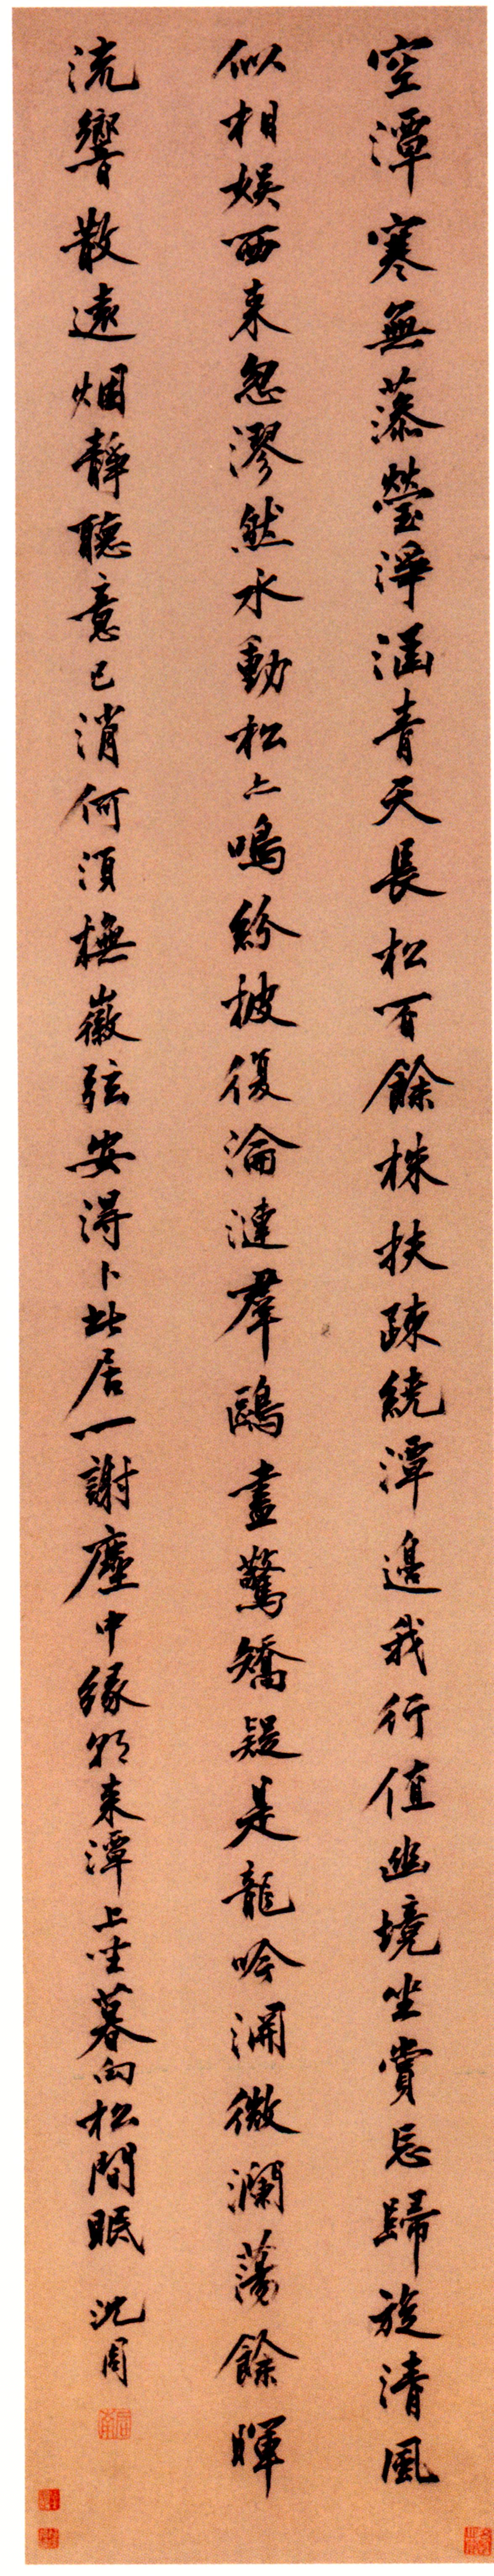 空潭寒無藻瑩淨涵青天長松百餘株扶疎繞潭邊我行值幽境坐賞忘歸旋清風
似相娛西來忽漻然水動松亦鳴紛披復淪漣群鷗盡驚矯疑是龍吟淵微瀾蕩餘暉
流響散遠烟靜聽意已消何須撫徽弦安得卜此居一謝塵中緣朝來潭上坐暮向松間眠 沈周